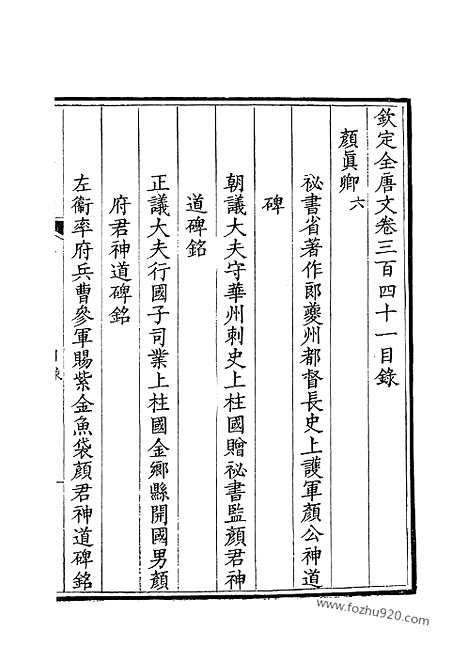 欽定全唐文卷三百四十一目錄
顏眞卿六
祕書省著作郎夔州都督長史上護軍顏公神道
碑
朝議大夫守華州刺史上柱國贈祕書監顏君神
道碑銘
正議大夫行國子司業上柱國金鄉縣開國男顏
府君神道碑銘
左衞率府兵曹參軍賜紫金魚袋顏君神道碑銘
www.fozhu920.com